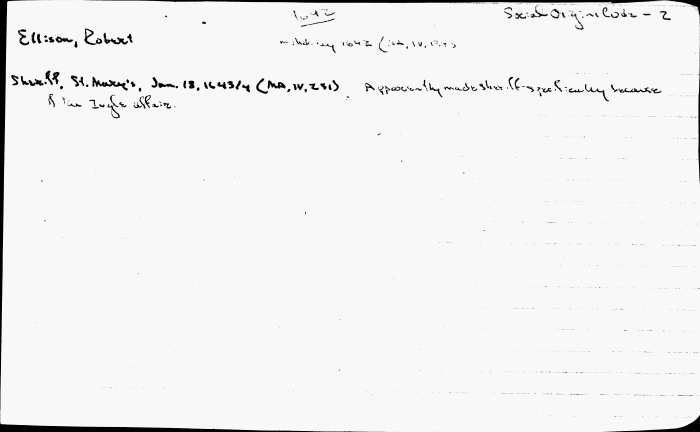 1642 Social Origins Code - 2
Ellison, Robert
1642 (MA, IV,
Sheriff, St. Mary's, Jan. 18, 1643/4 (MA, IV, 231). Apparently made sheriff specifically because
of the Ingle affair.